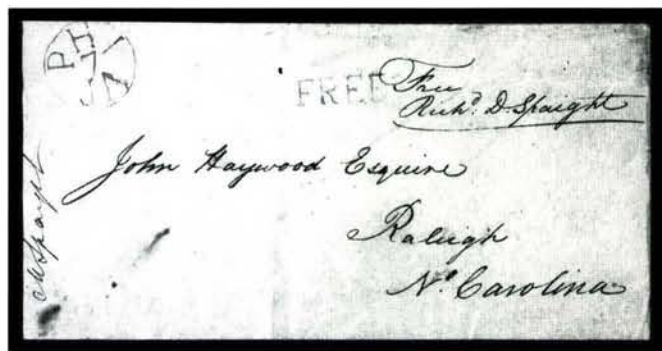 PH
7
JA
FREE
Free
Richd. D. Spaight
John Haywood Esquire
Raleigh
No. Carolina
Spaight